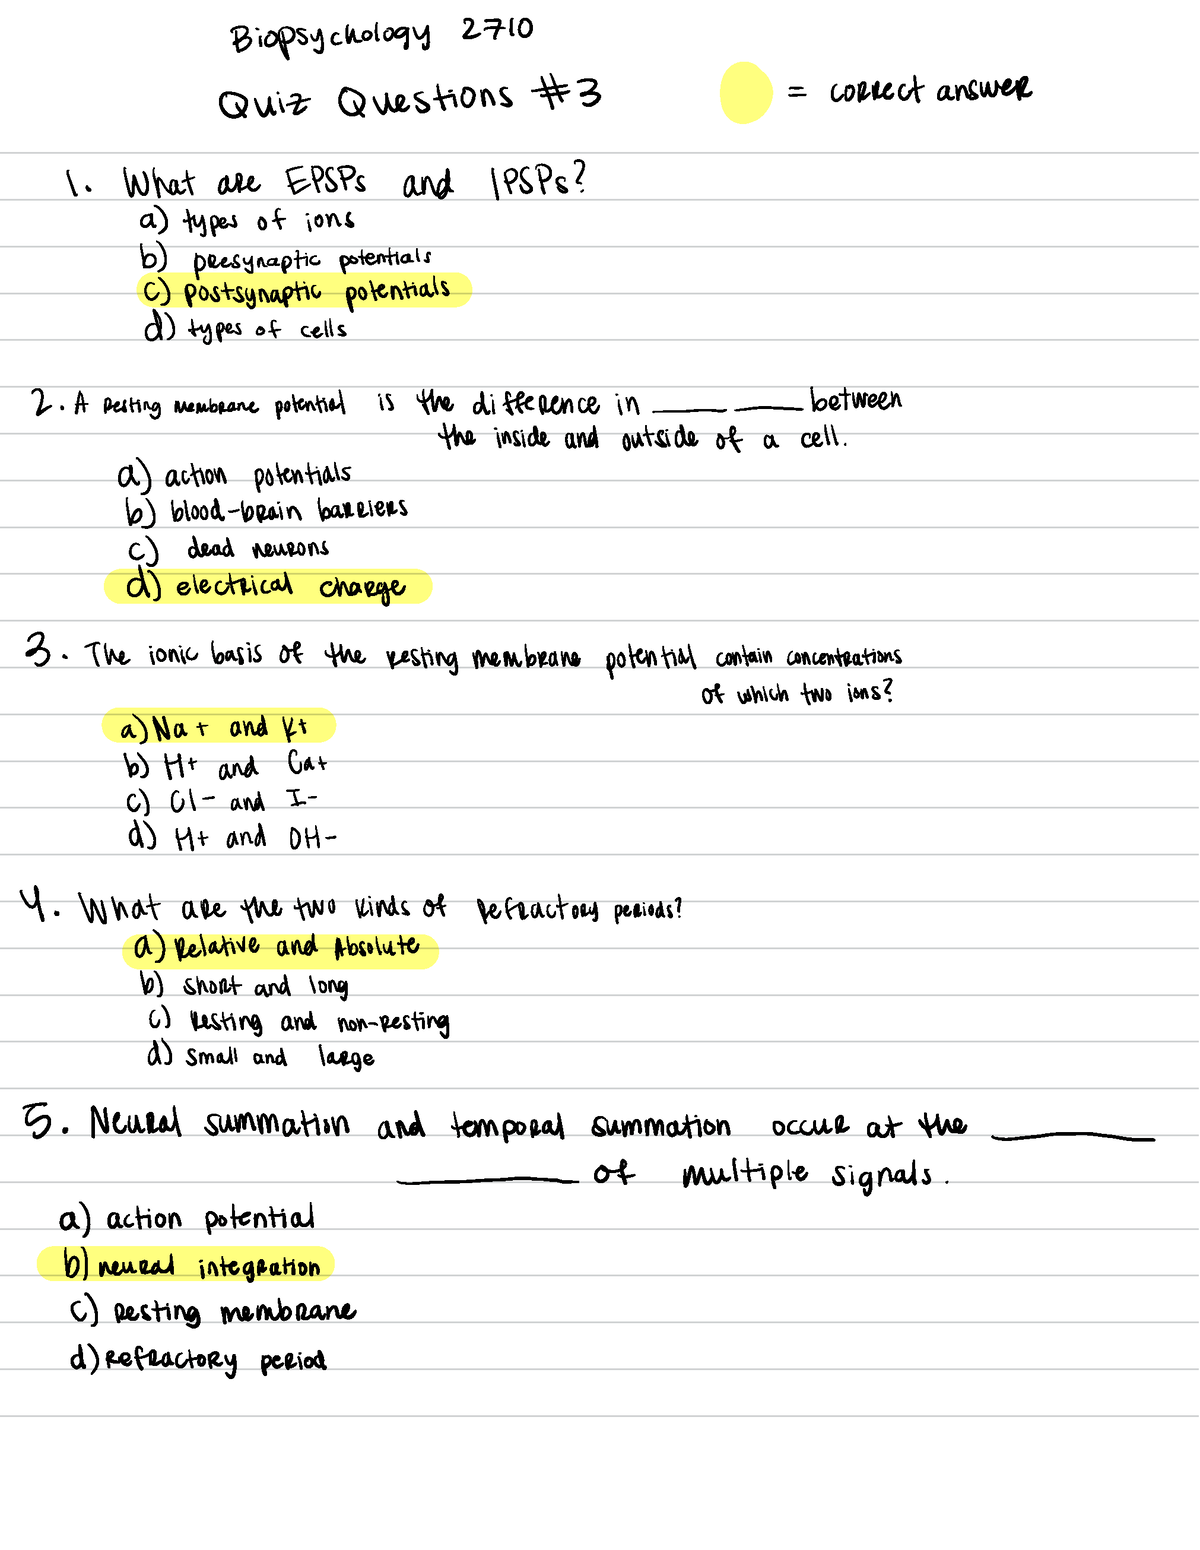 Biopsychology 2710
Quiz Questions #3
= correct answer
1. What are EPSPs and IPSPs?
a) types of ions
b) presynaptic potentials
c) postsynaptic potentials
d) types of cells
2. A resting membrane potential is the difference in ____ ____ between
the inside and outside of a cell.
a) action potentials
b) blood-brain barriers
c) dead neurons
d) electrical charge
3. The ionic basis of the resting membrane potential contain concentrations
of which two ions?
a) Na+ and K+
b) H+ and Ca+
c) Cl- and I-
d) H+ and OH-
4. What are the two kinds of refractory periods?
a) Relative and Absolute
b) short and long
c) resting and non-resting
d) small and large
5. Neural summation and temporal summation occur at the ____
____ of multiple signals.
a) action potential
b) neural integration
c) resting membrane
d) refractory period